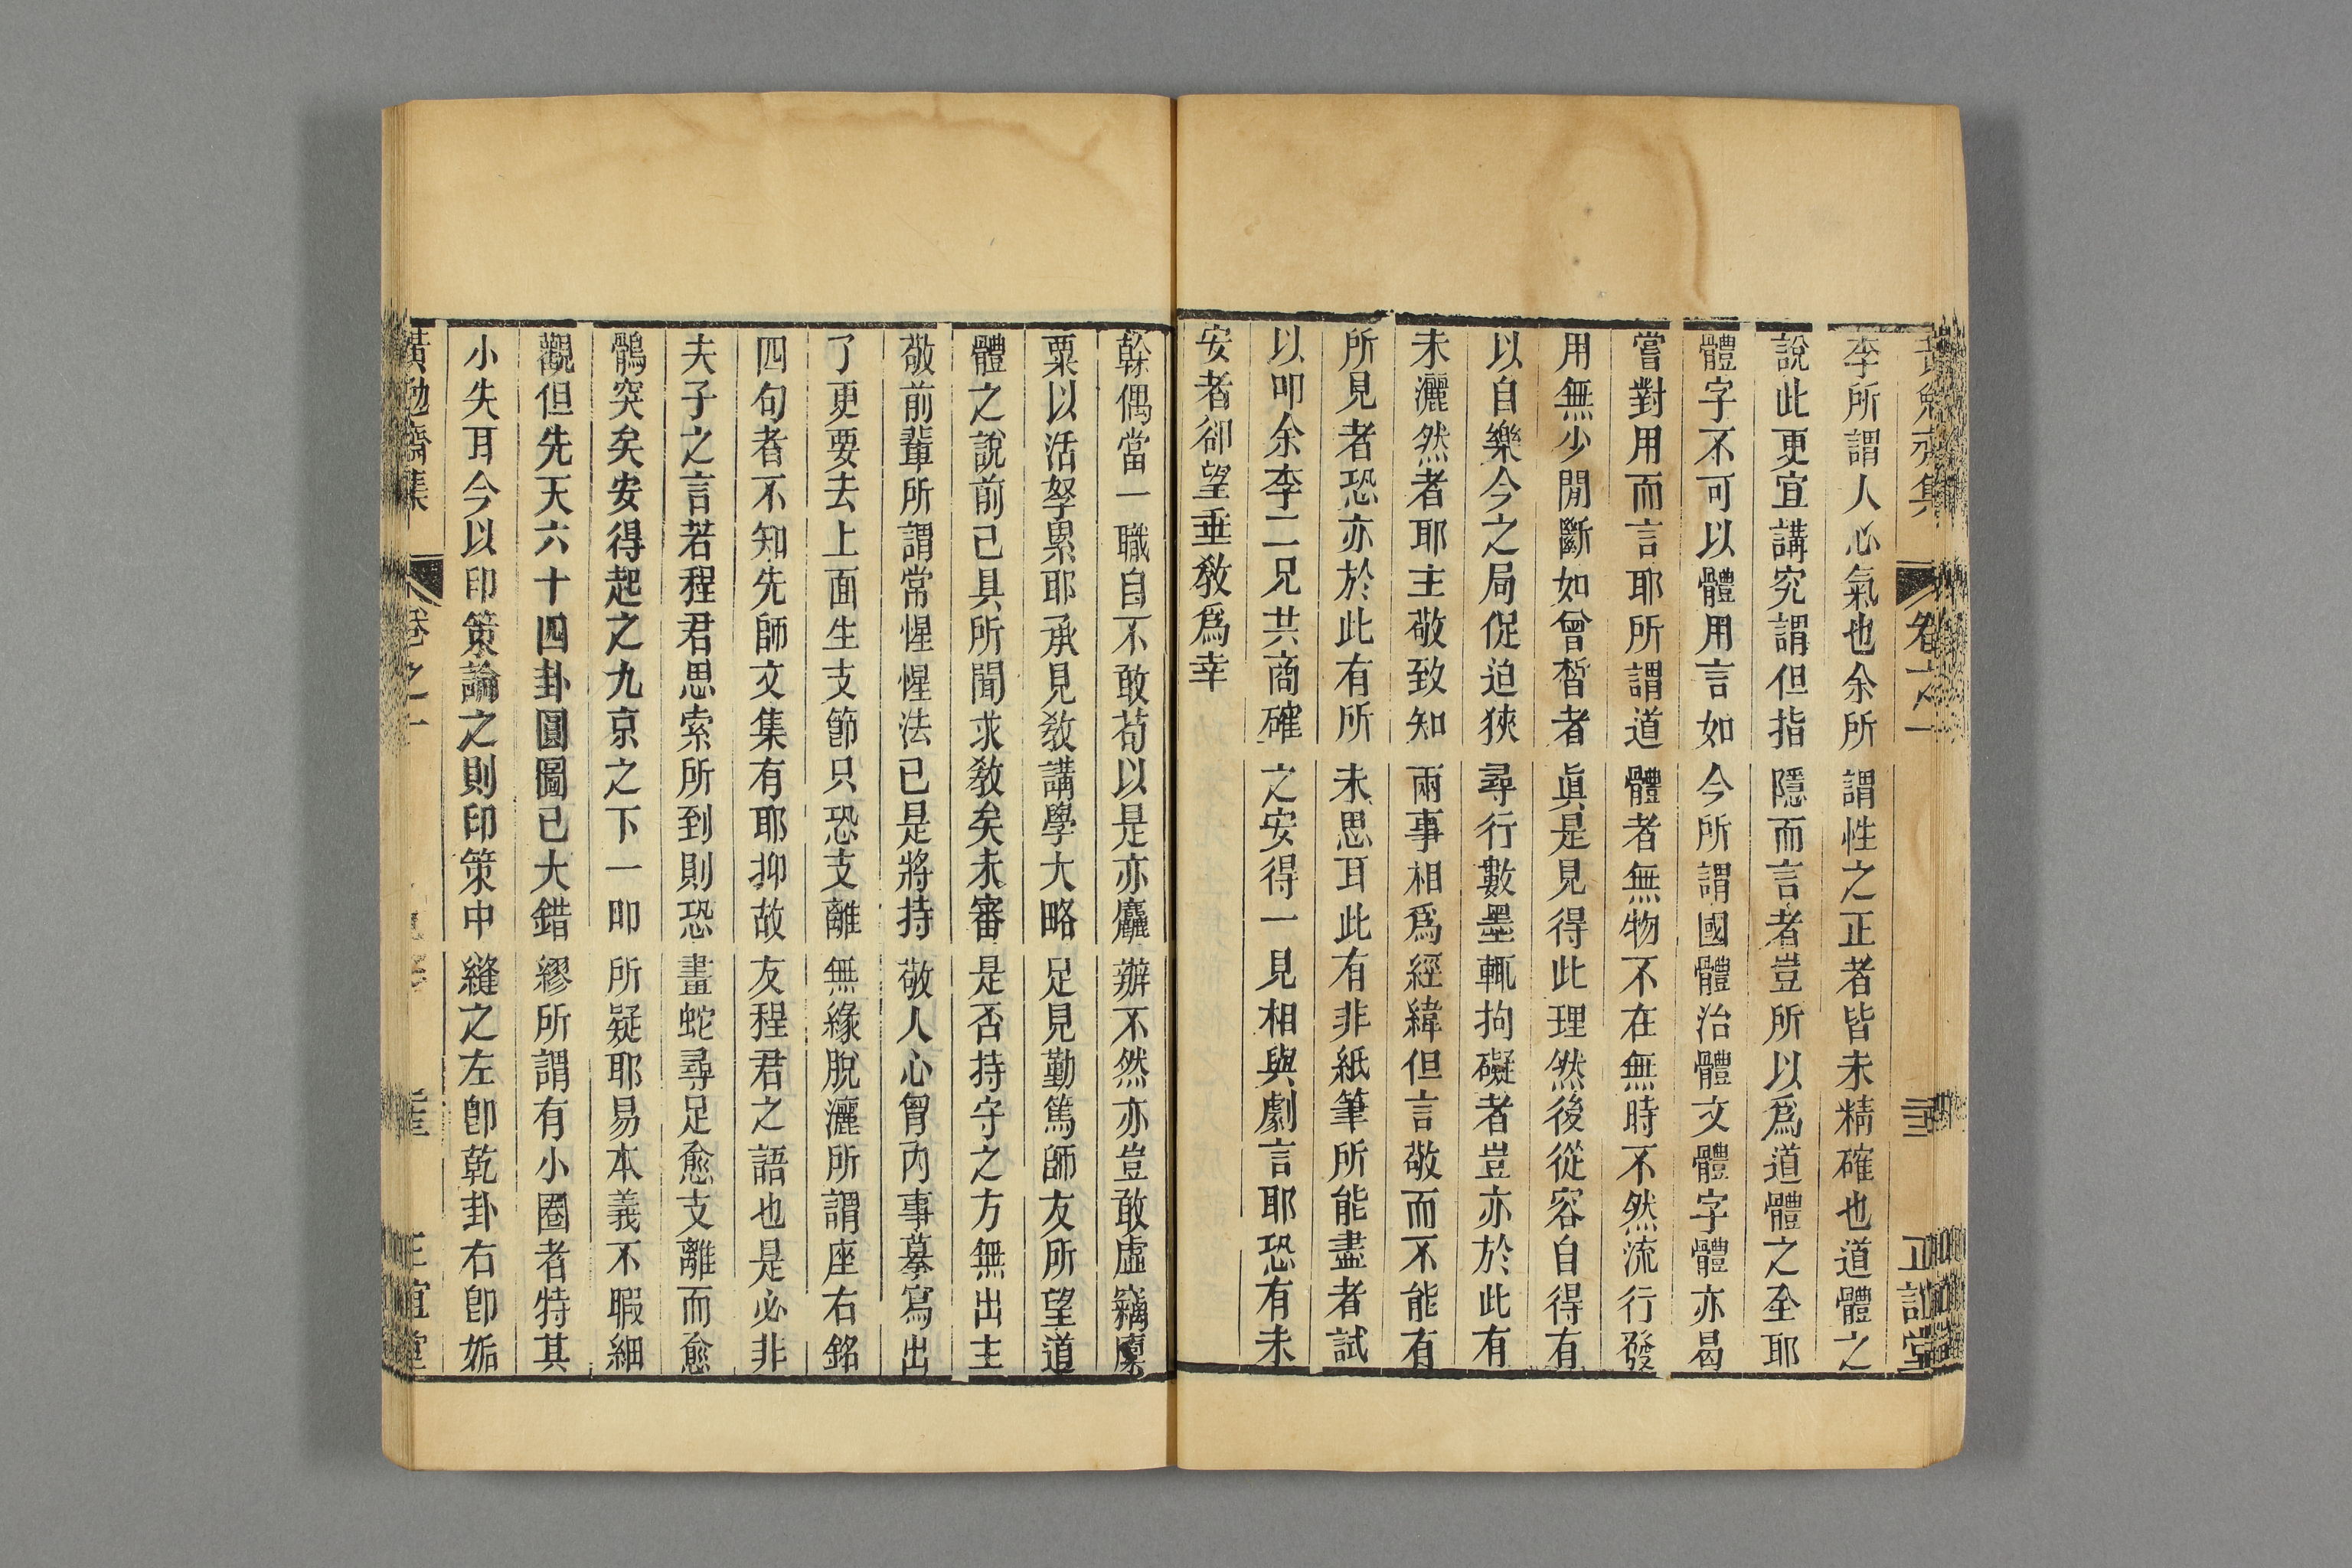 李所謂人心氣也余所謂性之正者皆未精確也道體之
說此更宜講究謂但指隱而言者豈所以爲道體之全耶
體字不可以體用言如今所謂國體治體文體字體亦曷
嘗對用而言耶所謂道體者無物不在無時不然流行發
用無少閒斷如曾晳者眞是見得此理然後從容自得有
以自樂今之局促迫狹尋行數墨輒拘礙者豈亦於此有
未灑然者耶主敬致知兩事相爲經緯但言敬而不能有
所見者恐亦於此有所未思耳此有非紙筆所能盡者試
以叩余李二兄共商確之安得一見相與劇言耶恐有未
安者卻望垂敎爲幸
榦偶當一職自不敢苟以是亦麤辦不然亦豈敢虛竊廩
粟以活孥累耶承見敎講學大略足見勤篤師友所望道
體之說前已具所聞求敎矣未審是否持守之方無出主
敬前輩所謂常惺惺法已是將持敬人心胷內事摹寫出
了更要去上面生支節只恐支離無緣脫灑所謂座右銘
四句者不知先師文集有耶抑故友程君之語也是必非
夫子之言若程君思索所到則恐畫蛇尋足愈支離而愈
鶻突矣安得起之九京之下一叩所疑耶易本義不暇細
觀但先天六十四卦圓圖已大錯繆所謂有小圈者特其
小失耳今以印策論之則印策中縫之左卽乾卦右卽姤
黃勉齋集
卷之一
正誼堂